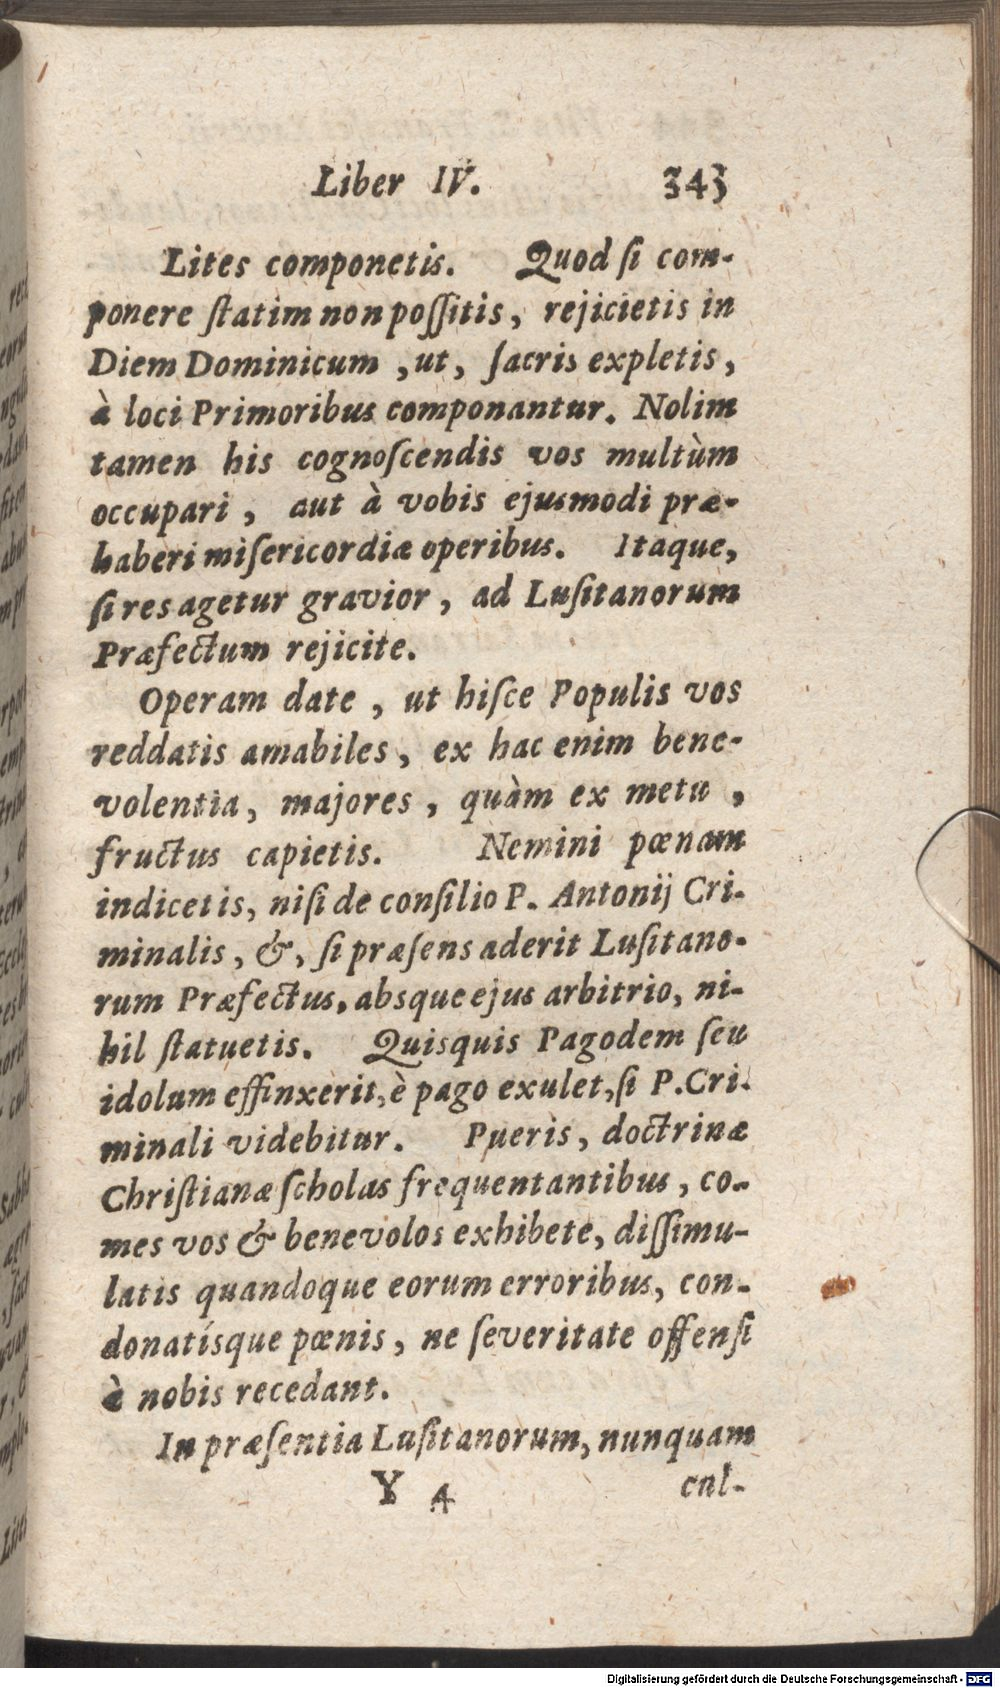 Liber IV. 343
Lites componetis. Quod ſi com-
ponere ſtatim non poſſitis, rejicietis in
Diem Dominicum, ut, ſacris expletis,
à loci Primoribus componantur. Nolim
tamen his cognoſcendis vos multùm
occupari, aut à vobis ejusmodi præ-
haberi miſericordiæ operibus. Itaque,
ſi res agetur gravior, ad Luſitanorum
Præfectum rejicite.
Operam date, ut hiſce Populis vos
reddatis amabiles, ex hac enim bene-
volentia, majores, quàm ex metu,
fructus capietis. Nemini pœnam
indicetis, niſi de conſilio P. Antonij Cri-
minalis, &, ſi præſens aderit Luſitano-
rum Præfectus, absque ejus arbitrio, ni-
hil ſtatuetis. Quisquis Pagodem ſeu
idolum effinxerit, è pago exulet, ſi P. Cri-
minali videbitur. Pueris, doctrinæ
Chriſtianæ ſcholas frequentantibus, co-
mes vos & benevolos exhibete, diſſimu-
latis quandoque eorum erroribus, con-
donatísque pœnis, ne ſeveritate offenſi
à nobis recedant.
In præſentia Luſitanorum, nunquam
Y 4 cul-
Digitalisierung gefördert durch die Deutsche Forschungsgemeinschaft - DFG